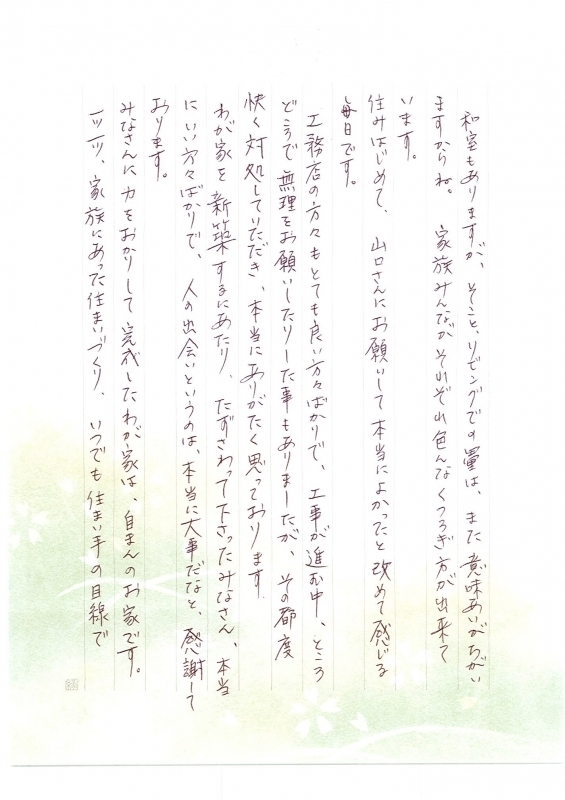 和室もありますが、そことリビングでの畳は、また意味あいがちがい
ますからね。家族みんながそれぞれ色んなくつろぎ方が出来て
います。
住みはじめて、山口さんにお願いして本当によかったと改めて感じる
毎日です。
工務店の方々もとても良い方々ばかりで、工事が進む中、ところ
どころで無理をお願いしたりした事もありましたが、その都度
快く対処していただき、本当にありがたく思っております
わが家を新築するにあたり、たずさわって下さったみなさん、本当
にいい方々ばかりで、人の出会いというのは、本当に大事だなと、感謝して
おります。
みなさんに力をおかりして完成したわが家は、自まんのお家です。
一ツ一ツ、家族にあった住まいづくり、いつでも住まい手の目線で